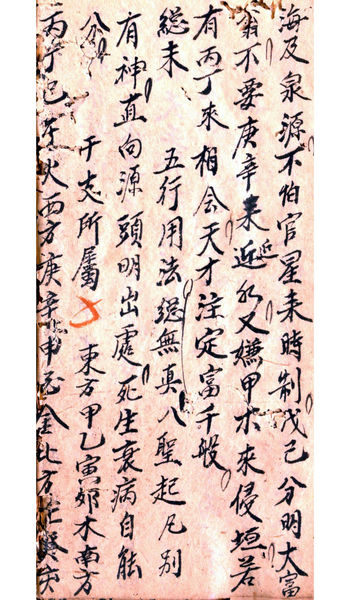 海及泉源不怕官星来時制戊己分明大富
翁不要庚辛来近又嫌甲木來侵垣若
有丙丁來相会天才注定富千般
総未　五行用法総無真八聖起凡別
有神直向源頭明出處死生衰病自能
分　干支所屬　東方甲乙寅卯木南方
丙丁巳午火西方庚辛申酉金北方壬癸亥